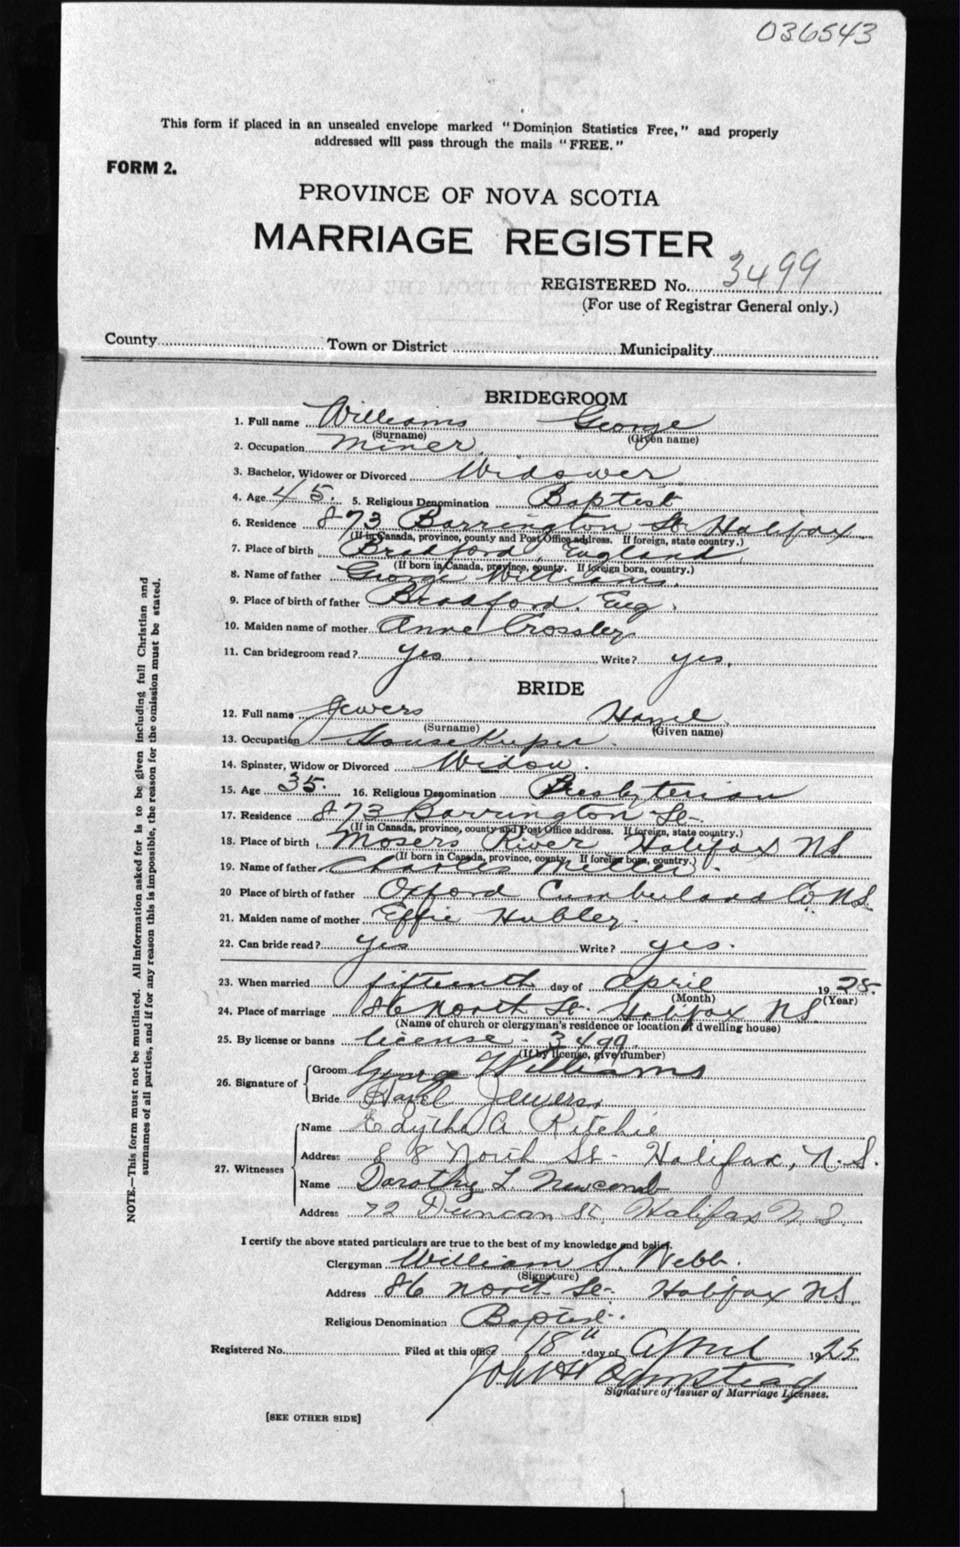 036543
This form if placed in an unsealed envelope marked "Dominion Statistics Free," and properly
addressed will pass through the mails "FREE."
FORM 2.
PROVINCE OF NOVA SCOTIA
MARRIAGE REGISTER
REGISTERED No. 3499
(For use of Registrar General only.)
County Town or District Municipality
BRIDEGROOM
1. Full name Williams George
(Surname) (Given name)
2. Occupation Miner
3. Bachelor, Widower or Divorced Widower
4. Age 45. 5. Religious Denomination Baptist
6. Residence 873 Barrington St. Halifax
(If in Canada, province, county and Post Office address. If foreign, state country.)
7. Place of birth Bradford, England
(If born in Canada, province, county. If foreign born, country.)
8. Name of father George Williams.
9. Place of birth of father Bradford. Eng.
10. Maiden name of mother Anne Crossley
11. Can bridegroom read? yes. Write? yes.
BRIDE
12. Full name Jewers Hazel
(Surname) (Given name)
13. Occupation Housekeeper.
14. Spinster, Widow or Divorced Widow.
15. Age 35. 16. Religious Denomination Presbyterian
17. Residence 873 Barrington St.
(If in Canada, province, county and Post Office address. If foreign, state country.)
18. Place of birth Mosers River Halifax NS
(If born in Canada, province, county. If foreign born, country.)
19. Name of father Charles
20 Place of birth of father Oxford Cumberland Co. NS.
21. Maiden name of mother Effie Hubley.
22. Can bride read? yes Write? yes.
23. When married fifteenth day of April 1925.
(Month) (Year)
24. Place of marriage 86 North St. Halifax NS.
(Name of church or clergyman's residence or location of dwelling house)
25. By license or banns license. 3499.
(If by license, give number)
26. Signature of
Groom George Williams
Bride Hazel Jewers
27. Witnesses
Name Edytha A. Ritchie
Address 88 North St- Halifax, N.S.
Name Dorothy L. Newcomb
Address 72 Duncan St, Halifax N.S.
I certify the above stated particulars are true to the best of my knowledge and belief.
Clergyman William S. Webb.
(Signature)
Address 86 North St- Halifax NS.
Religious Denomination Baptist.
Registered No. Filed at this office 18th day of April 1925
John H
Signature of Issuer of Marriage Licenses.
[SEE OTHER SIDE]
NOTE.—This form must not be mutilated. All information asked for is to be given including full Christian and
surnames of all parties, and if for any reason this is impossible, the reason for the omission must be stated.